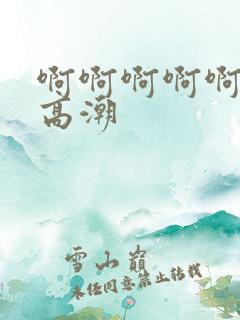 啊啊啊啊啊
高潮
雪山巅
未经同意禁止转载